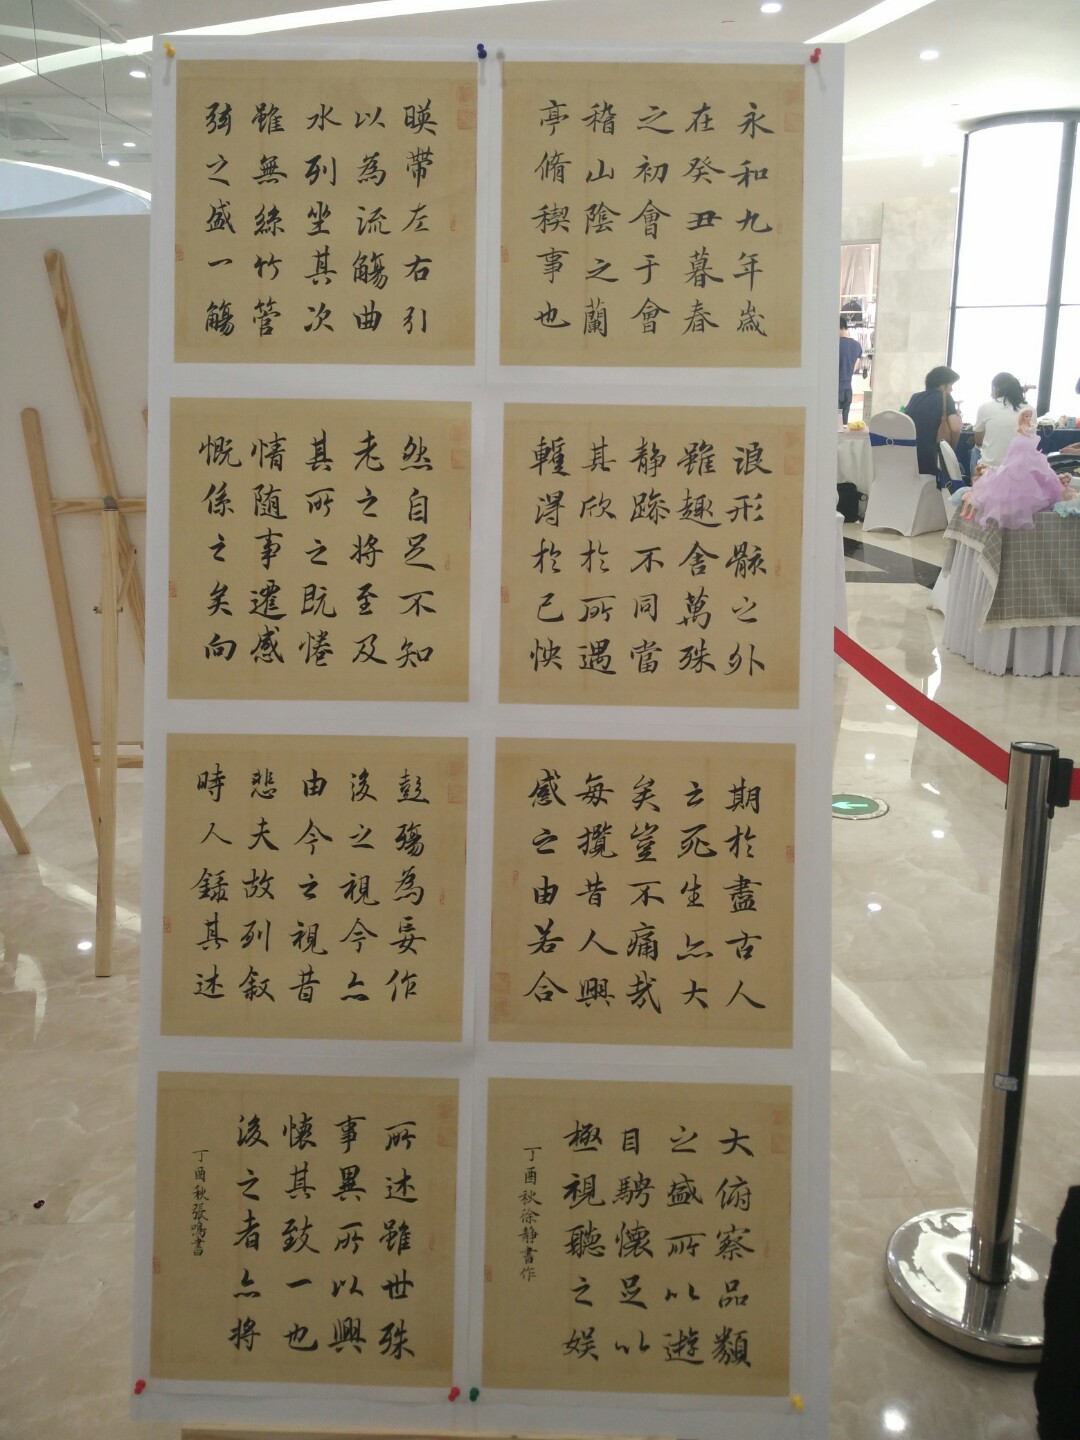 永和九年歲
在癸丑暮春
之初會于會
稽山陰之蘭
亭脩稧事也
暎帶左右引
以為流觴曲
水列坐其次
雖無絲竹管
弦之盛一觴
浪形骸之外
雖趣舍萬殊
静躁不同當
其欣於所遇
輊得於己怏
然自足不知
老之将至及
其所之既惓
情随事遷感
慨係之矣向
期於盡古人
云死生亦大
矣豈不痛哉
每攬昔人興
感之由若合
彭殤為妄作
後之視今亦
由今之視昔
悲夫故列叙
時人録其述
大俯察品類
之盛所以遊
目騁懷足以
極視聽之娱
丁酉秋徐静書作
所述雖世殊
事異所以興
懐其致一也
後之者亦将
丁酉秋張鳴書